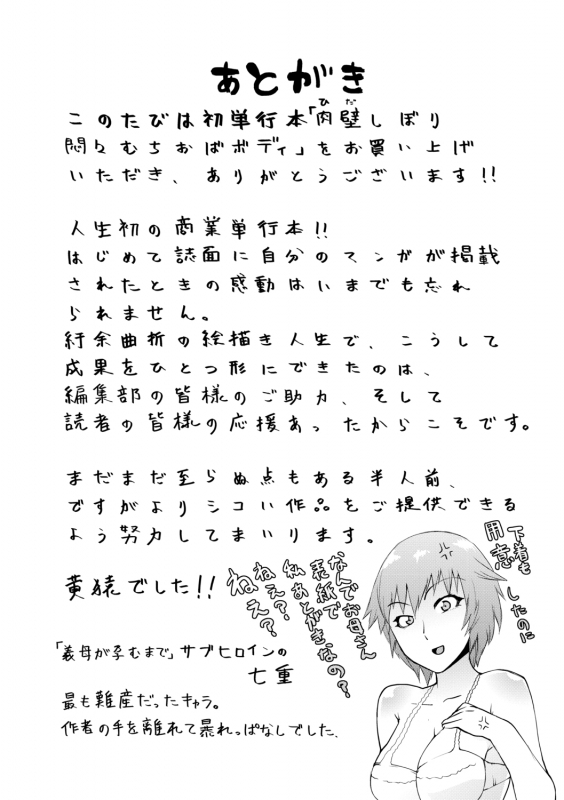 あとがき
このたびは初単行本「肉壁しぼり
ひだ
悶々むちおばボディ」をお買い上げ
いただき、ありがとうございます!!
人生初の商業単行本!!
はじめて誌面に自分のマンガが掲載
されたときの感動はいまでも忘れ
られません。
紆余曲折の絵描き人生で、こうして
成果をひとつ形にできたのは、
編集部の皆様のご助力、そして
読者の皆様の応援あったからこそです。
まだまだ至らぬ点もある半人前、
ですがよりシコい作品をご提供できる
よう努力してまいります。
黄猿でした!!
下着も
用意
したのに
なんでお母さん
表紙で
私あとがきなの?
ねえ?
ねえ?
「義母が孕むまで」サブヒロインの
七重
最も難産だったキャラ。
作者の手を離れて暴れっぱなしでした。